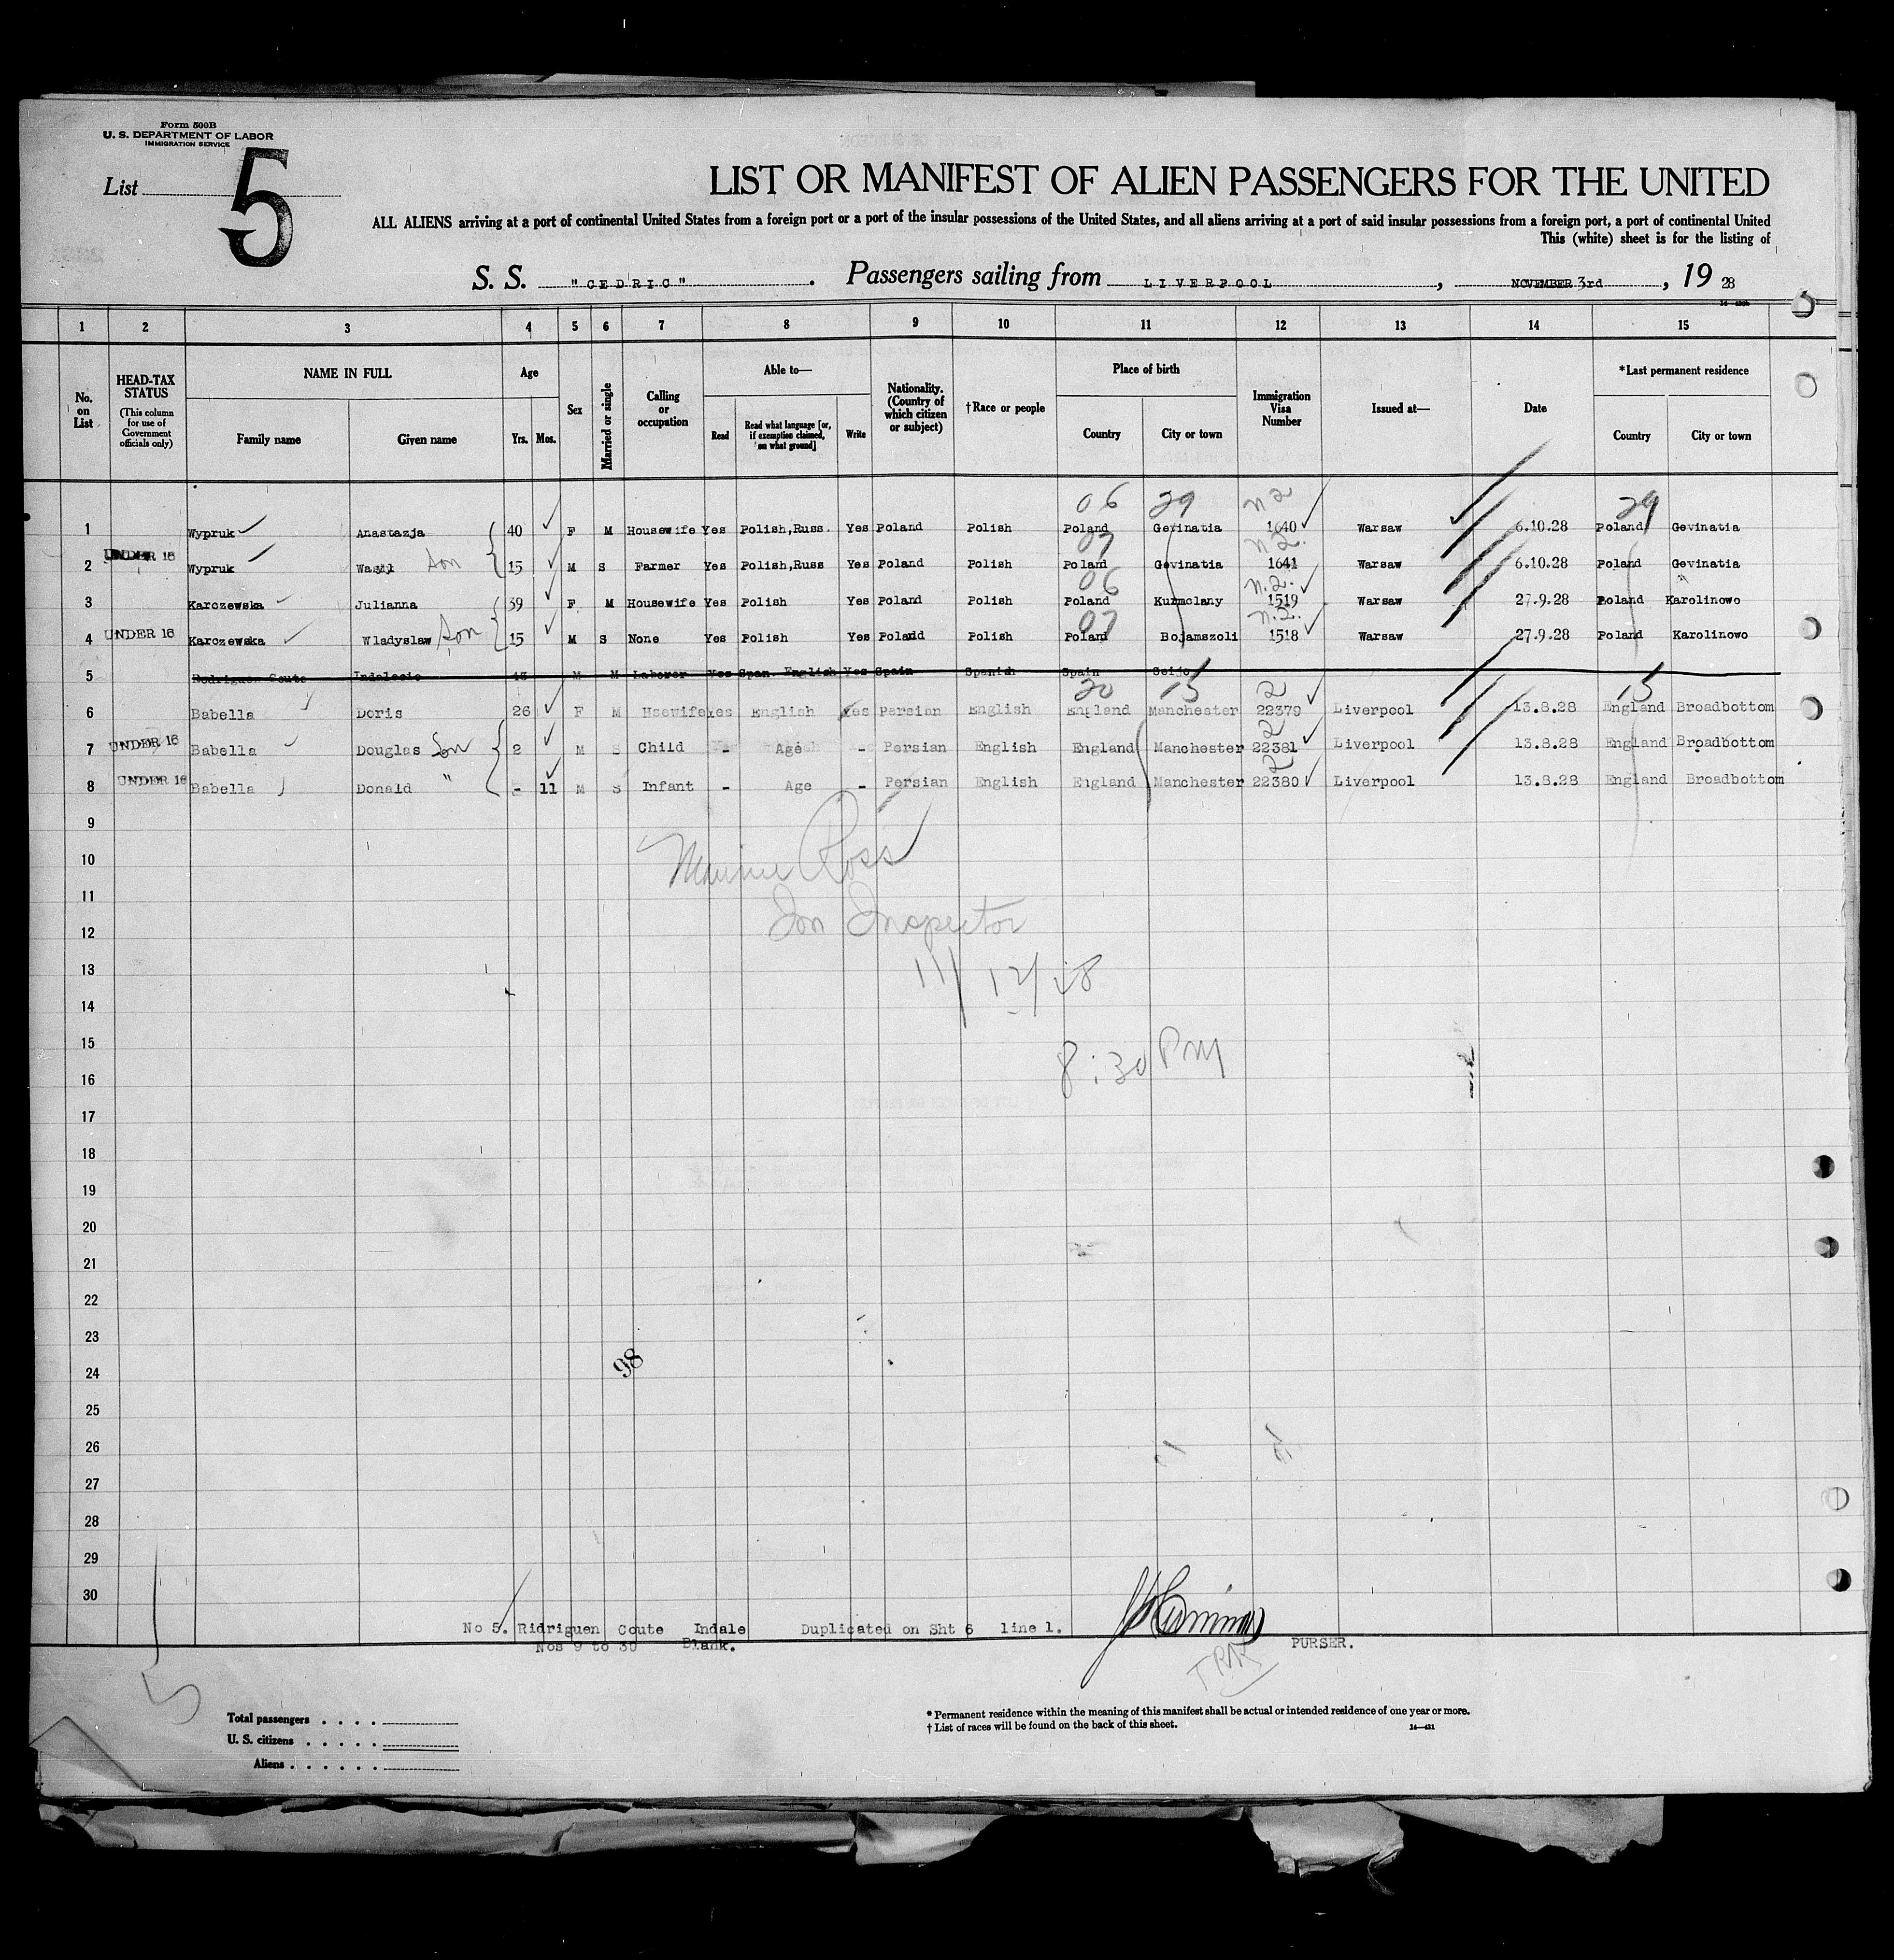 Form 500B
U. S. DEPARTMENT OF LABOR
IMMIGRATION SERVICE
List 5
LIST OR MANIFEST OF ALIEN PASSENGERS FOR THE UNITED
ALL ALIENS arriving at a port of continental United States from a foreign port or a port of the insular possessions of the United States, and all aliens arriving at a port of said insular possessions from a foreign port, a port of continental United
This (white) sheet is for the listing of
S. S. "CEDRIC". Passengers sailing from LIVERPOOL, NOVEMBER 3rd, 19 28
1 2 3 4 5 6 7 8 9 10 11 12 13 14 15
No. on List
HEAD-TAX STATUS
(This column for use of Government officials only)
NAME IN FULL
Family name Given name
Age
Yrs. Mos.
Sex
Married or single
Calling or occupation
Able to—
Read
Read what language [or, if exemption claimed, on what ground]
Write
Nationality. (Country of which citizen or subject)
†Race or people
Place of birth
Country City or town
Immigration Visa Number
Issued at—
Date
*Last permanent residence
Country City or town
06 29 n2 29
1 Wypruk Anastazja 40 F M Housewife Yes Polish,Russ. Yes Poland Polish Poland Gevinatia 1640 Warsaw 6.10.28 Poland Gevinatia
07 n2.
2 UNDER 16 Wypruk son 15 M S Farmer Yes Polish,Russ Yes Poland Polish Poland Gevinatia 1641 Warsaw 6.10.28 Poland Gevinatia
06 n.2. "
3 Karczewska Julianna 39 F M Housewife Yes Polish Yes Poland Polish Poland Kurmclany 1519 Warsaw 27.9.28 Poland Karolinowo
07 n.2.
4 UNDER 16 Karczewska Wladyslaw son 15 M S None Yes Polish Yes Poland Polish Poland Bojamszoli 1518 Warsaw 27.9.28 Poland Karolinowo
5 Rodriguen Coute Indalecio 43 M M Laborer Yes Span. English Yes Spain Spanish Spain Seijo
20 15 2 15
6 Babella Doris 26 F M Hsewife Yes English Yes Persian English England Manchester 22379 Liverpool 13.8.28 England Broadbottom
2
7 UNDER 16 Babella Douglas Son 2 M S Child - Age - Persian English England Manchester 22381 Liverpool 13.8.28 England Broadbottom
2
8 UNDER 16 Babella Donald " - 11 M S Infant - Age - Persian English England Manchester 22380 Liverpool 13.8.28 England Broadbottom
9
10
Ross
11
12
Inspector
13
11/12/28
14
15
8:30 PM
16
17
18
19
20
21
22
23
24
98
25
26
27
28
29
30
No 5. Ridriguen Coute Indale Duplicated on Sht 6 line 1.
Nos 9 to 30 Blank.
PURSER.
5
Total passengers . . . .
U. S. citizens . . . . .
Aliens . . . . . .
* Permanent residence within the meaning of this manifest shall be actual or intended residence of one year or more.
† List of races will be found on the back of this sheet.
14—431